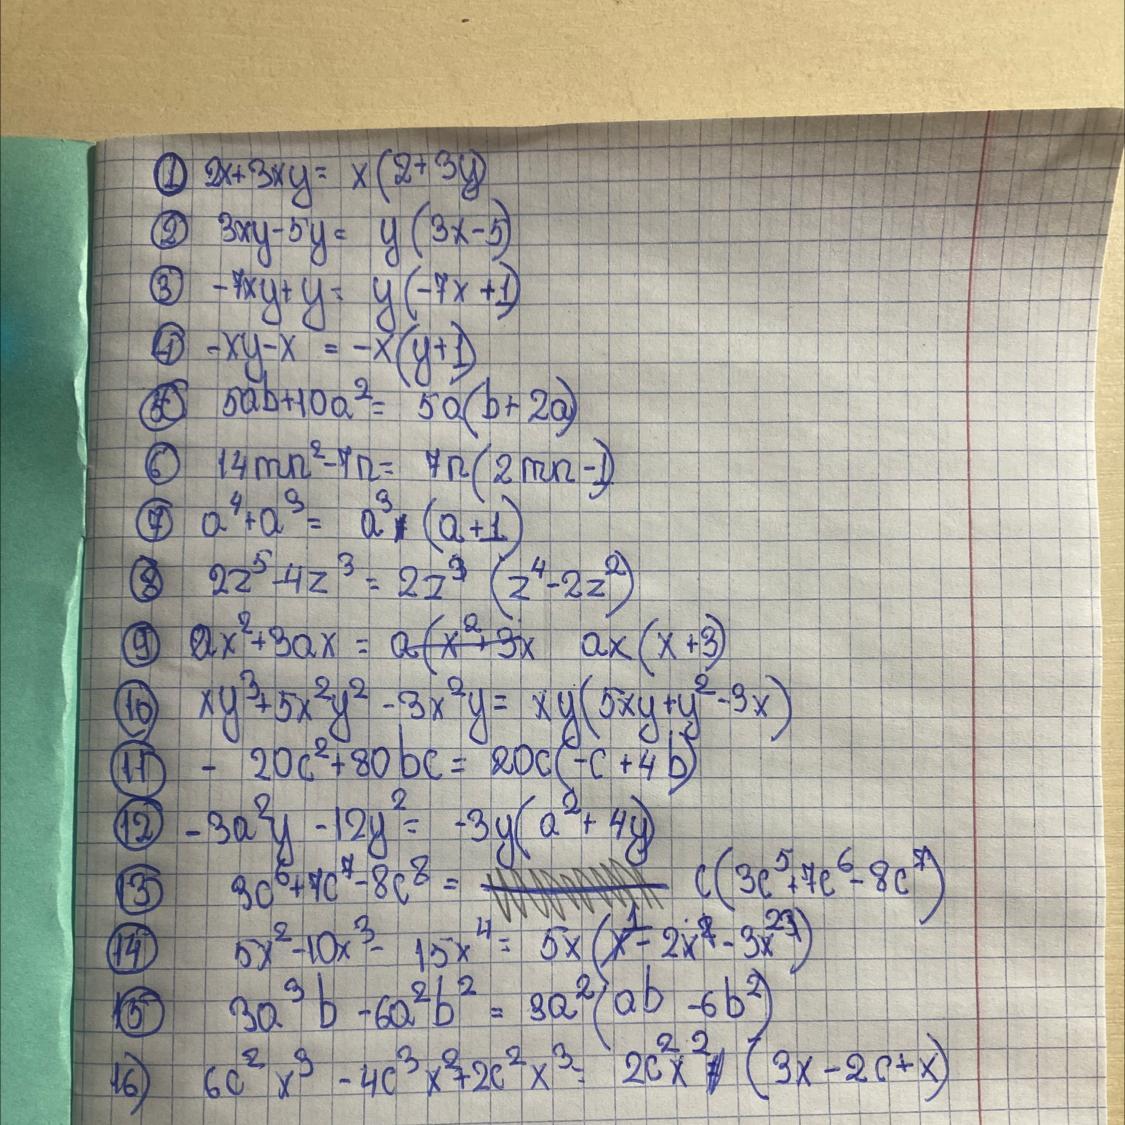 ① 2x+3xy= x(2+3y)
② 3xy-5y= y(3x-5)
③ -7xy+y= y(-7x+1)
④ -xy-x = -x(y+1)
⑤ 5ab+10a²= 5a(b+2a)
⑥ 14mn²-7n= 7n(2mn-1)
⑦ a⁴+a³= a³ (a+1)
⑧ 2z⁵-4z³ = 2z³ (z⁴-2z²)
⑨ ax²+3ax = a(x²+3x ax(x+3)
⑩ xy³+5x²y²-3x²y= xy(5xy+y²-3x)
⑪ - 20c²+80bc= 20c(-c+4b)
⑫ -3a²y-12y²= -3y(a²+4y)
⑬ 3c⁶+7c⁷-8c⁸ = c(3c⁵+7c⁶-8c⁷)
⑭ 5x²-10x³- 15x⁴= 5x(x¹-2x²-3x³)
⑮ 3a³b-6a²b² = 3a²(ab-6b²)
16) 6c²x³-4c³x²+2c²x³= 2c²x² (3x-2c+x)